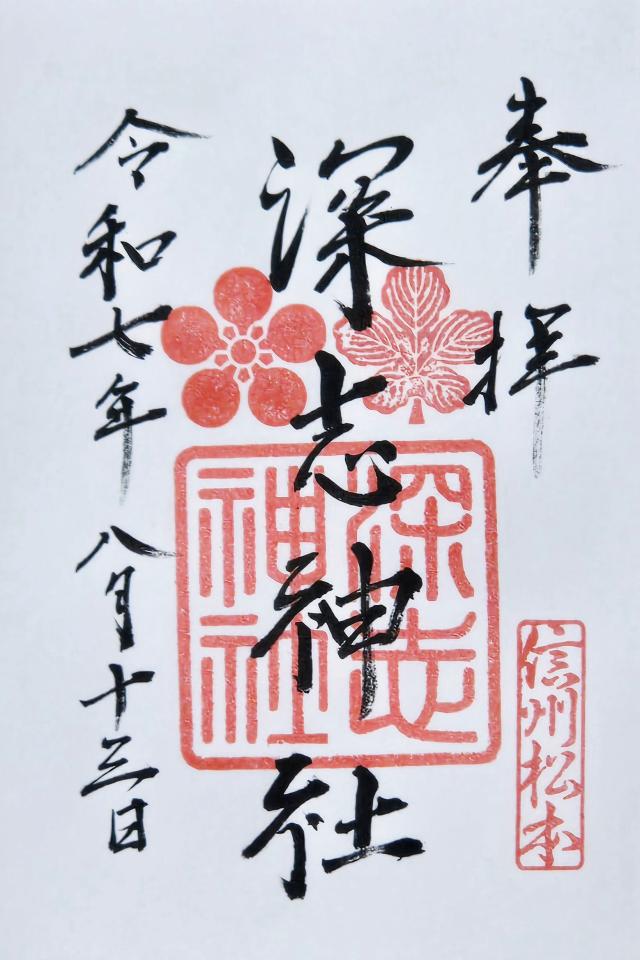 奉拝
信州松本
深志神社
深志神社
令和七年八月十三日